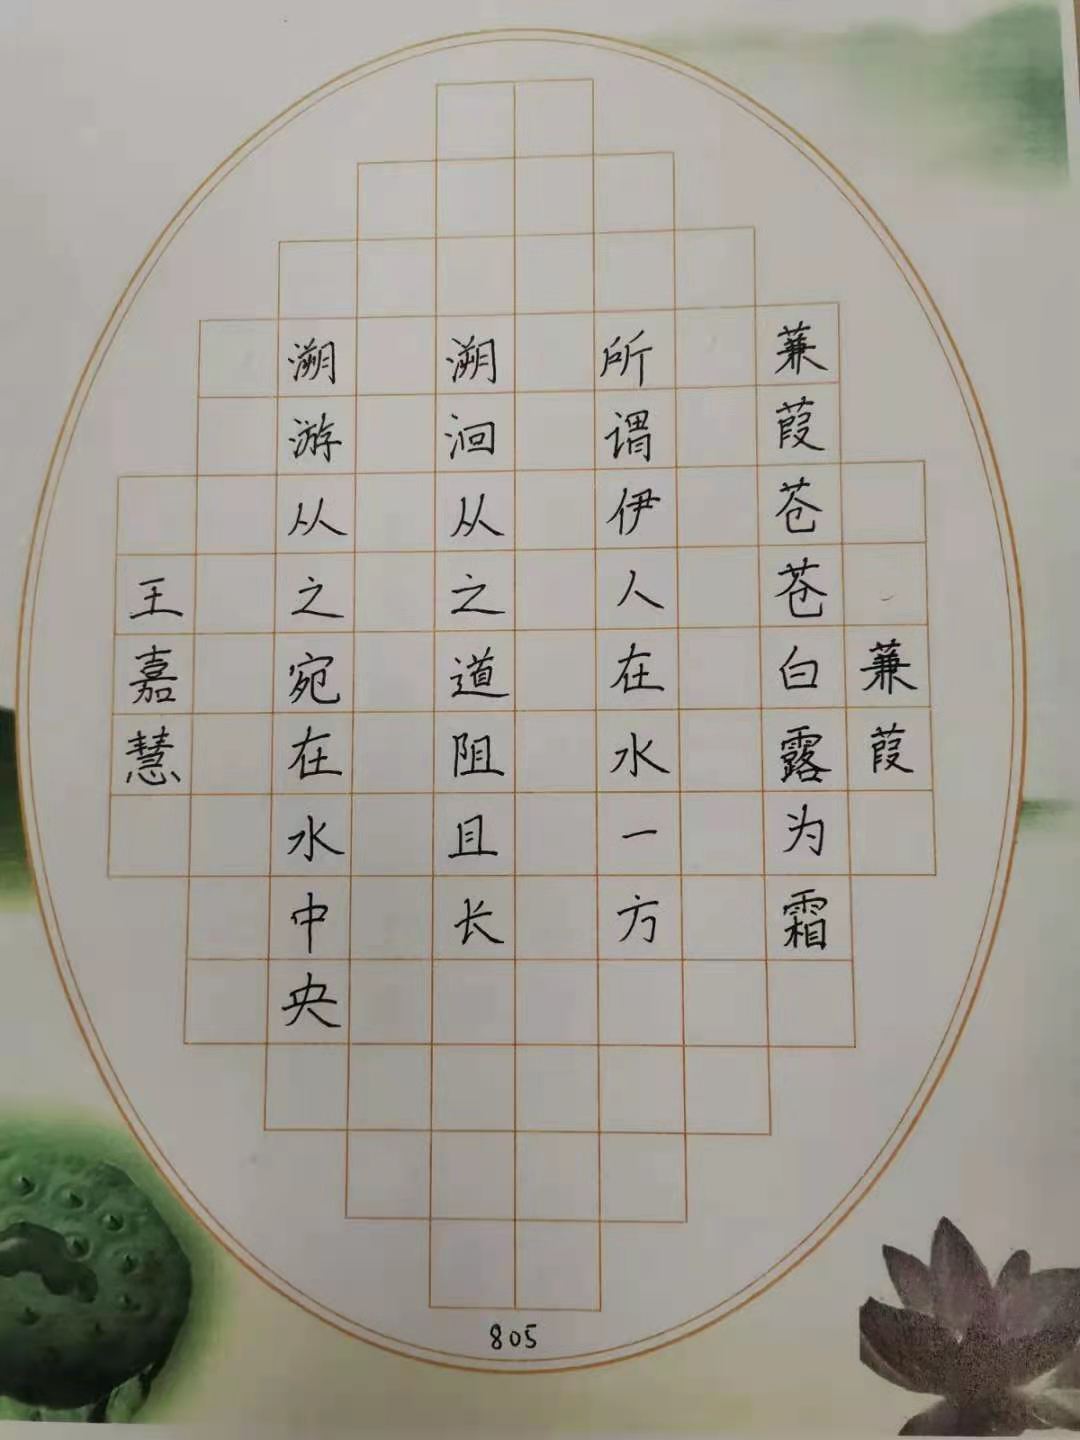 蒹葭
蒹葭苍苍白露为霜
所谓伊人在水一方
溯洄从之道阻且长
溯游从之宛在水中央
王嘉慧
805